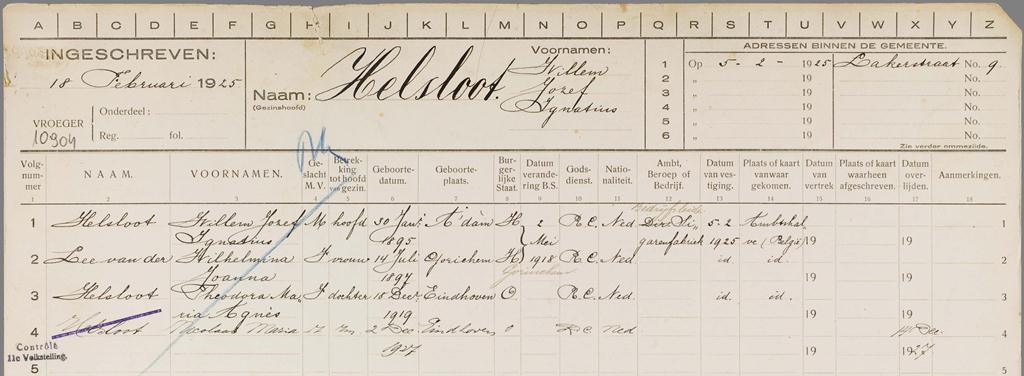 A B C D E F G H I J K L M N O P Q R S T U V W X Y Z
INGESCHREVEN:
18 Februari 1925
VROEGER
10904
Onderdeel:
Reg. fol.
Naam: Helsloot.
(Gezinshoofd)
Voornamen:
Willem
Jozef
Ignatius
ADRESSEN BINNEN DE GEMEENTE.
1 Op 5-2- 1925 Lakerstraat No. 9.
2 " 19 No.
3 " 19 No.
4 " 19 No.
5 " 19 No.
6 " 19 No.
Zie verder ommezijde.
Volgnummer NAAM. VOORNAMEN. Geslacht M. V. Betrekking tot hoofd van gezin. Geboortedatum. Geboorteplaats. Burgerlijke Staat. Datum verandering B.S. Godsdienst. Nationaliteit. Ambt, Beroep of Bedrijf. Datum van vestiging. Plaats of kaart vanwaar gekomen. Datum van vertrek Plaats of kaart waarheen afgeschreven. Datum overlijden. Aanmerkingen.
1 2 3 4 5 6 7 8 9 10 11 12 13 14 15 16 17 18
1 Helsloot Willem Jozef M hoofd 30 Jan. A'dam H 2 R.C. Ned Dir. Si„ 5-2 1
Ignatius 1895 Mei garenfabriek 1925 ve (Belgie) 19 19
2 Lee van der Wilhelmina V vrouw 14 Juli Gorichem H 1918 R.C. Ned. id. id. 2
Joanna 1897 Gorinchem 19 19
3 Helsloot Theodora Ma„ V dochter 15 Dec. Eindhoven O. R.C. Ned. id. id. 3
ria Agnes 1919 19 19
4 Helsloot Nicolaas Maria M zn. 2 Dec Eindhoven O R.C. Ned Dec. 4
1927 19 1927
Contrôle
11e Volkstelling.
5 5